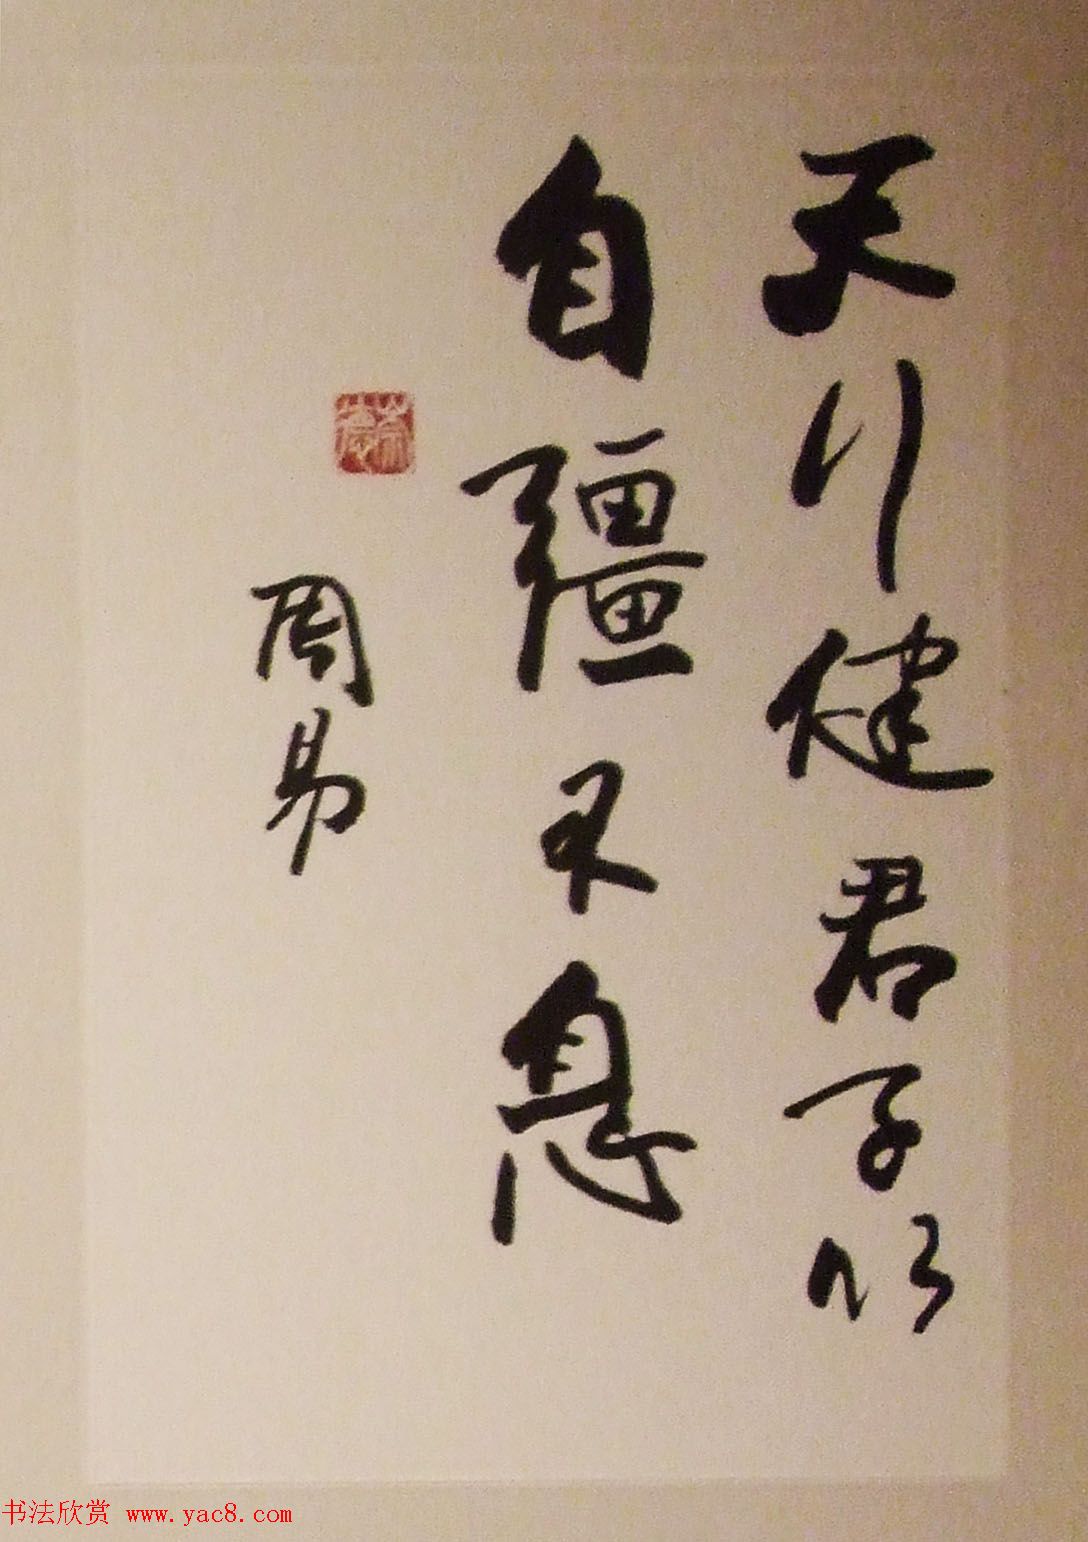 天行健君子以
自彊不息
周易
书法欣赏 www.yac8.com